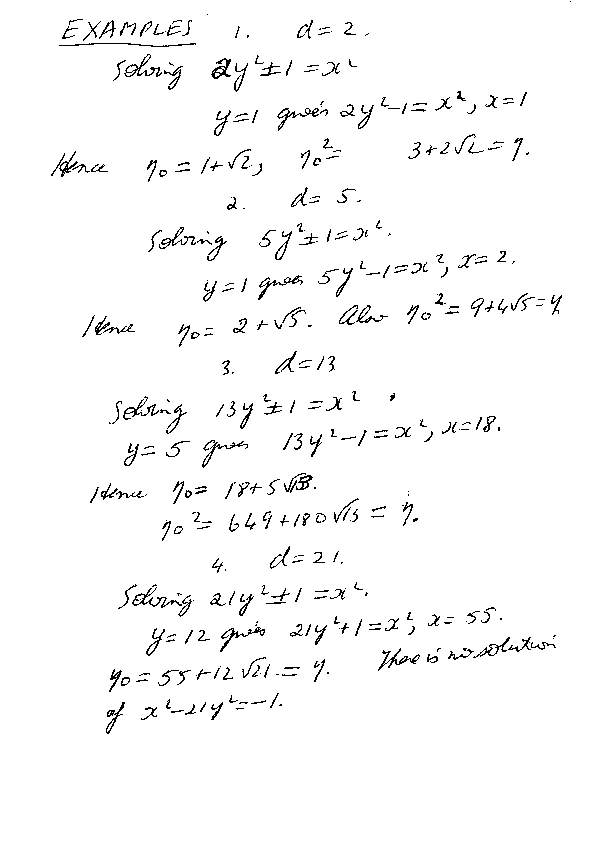 EXAMPLES 1. d=2.
Solving 2y²±1=x²
y=1 gives 2y²-1=x², x=1
Hence η₀=1+√2, η₀²= 3+2√2=η.
2. d=5.
Solving 5y²±1=x².
y=1 gives 5y²-1=x², x=2.
Hence η₀=2+√5. Also η₀²=9+4√5=η
3. d=13
Solving 13y²±1=x²
y=5 gives 13y²-1=x², x=18.
Hence η₀=18+5√13.
η₀²=649+180√13=η.
4. d=21.
Solving 21y²±1=x².
y=12 gives 21y²+1=x², x=55.
η₀=55+12√21=η. There is no solution
of x²-21y²=-1.